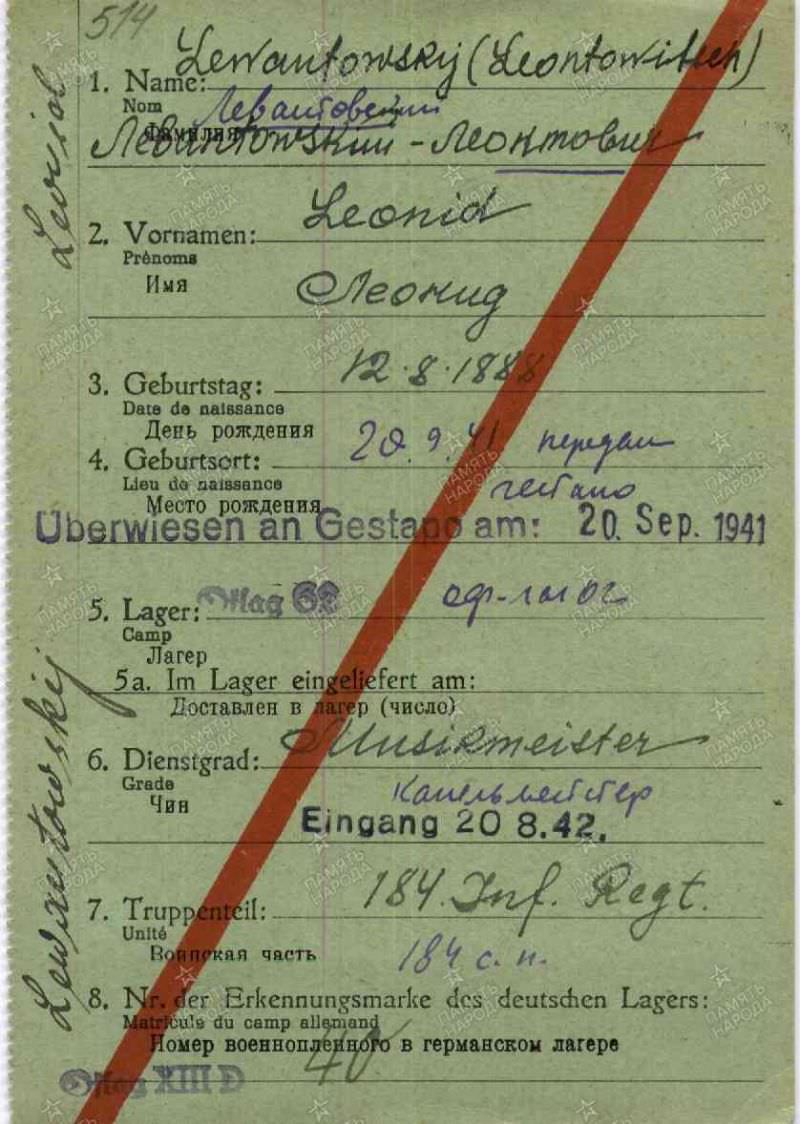 514
Lewantowskij (Leontowitsch)
1. Name:
Nom
Левантовский
Фамилия
Левантовский - Леонтович
2. Vornamen: Leonid
Prénoms
Имя
Леонид
3. Geburtstag: 12.8.1888
Date de naissance
День рождения
20.9.41 передан
4. Geburtsort:
Lieu de naissance
гестапо
Место рождения
Überwiesen an Gestapo am: 20. Sep. 1941
5. Lager: Oflag 62 оф-лаг 62
Camp
Лагерь
5a. Im Lager eingeliefert am:
Доставлен в лагерь (число)
6. Dienstgrad: Musikmeister
Grade
капельмейстер
Чин
Eingang 20 8.42.
7. Truppenteil: 184. Inf. Regt.
Unité
Воинская часть 184 с.п.
8. Nr. der Erkennungsmarke des deutschen Lagers:
Matricule du camp allemand
Номер военнопленного в германском лагере
40
Oflag XIII D
Lewantowskij Leonid
ПАМЯТЬ НАРОДА